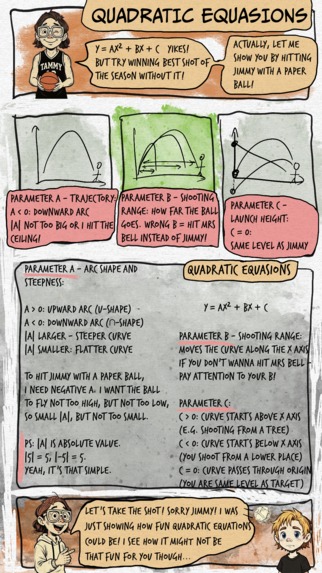 QUADRATIC EQUASIONS
Y = AX² + BX + C YIKES!
BUT TRY WINNING BEST SHOT OF
THE SEASON WITHOUT IT!
ACTUALLY, LET ME
SHOW YOU BY HITTING
JIMMY WITH A PAPER
BALL!
TAMMY
PARAMETER A - TRAJECTORY:
A < 0: DOWNWARD ARC
|A| NOT TOO BIG OR I HIT THE
CEILING!
PARAMETER B - SHOOTING
RANGE: HOW FAR THE BALL
GOES. WRONG B = HIT MRS
BELL INSTEAD OF JIMMY!
PARAMETER C -
LAUNCH HEIGHT:
C = 0:
SAME LEVEL AS JIMMY
QUADRATIC EQUASIONS
PARAMETER A - ARC SHAPE AND
STEEPNESS:
A > 0: UPWARD ARC (U-SHAPE)
A < 0: DOWNWARD ARC (∩-SHAPE)
|A| LARGER - STEEPER CURVE
|A| SMALLER: FLATTER CURVE
TO HIT JIMMY WITH A PAPER BALL,
I NEED NEGATIVE A. I WANT THE BALL
TO FLY NOT TOO HIGH, BUT NOT TOO LOW,
SO SMALL |A|, BUT NOT TOO SMALL.
PS: |A| IS ABSOLUTE VALUE.
|5| = 5, |-5| = 5.
YEAH, IT'S THAT SIMPLE.
Y = AX² + BX + C
PARAMETER B - SHOOTING RANGE:
MOVES THE CURVE ALONG THE X AXIS
IF YOU DON'T WANNA HIT MRS BELL -
PAY ATTENTION TO YOUR B!
PARAMETER C:
C > 0: CURVE STARTS ABOVE X AXIS
(E.G. SHOOTING FROM A TREE)
C < 0: CURVE STARTS BELOW X AXIS
(YOU SHOOT FROM A LOWER PLACE)
C = 0: CURVE PASSES THROUGH ORIGIN
(YOU ARE SAME LEVEL AS TARGET)
LET'S TAKE THE SHOT! SORRY JIMMY! I WAS
JUST SHOWING HOW FUN QUADRATIC EQUATIONS
COULD BE! I SEE HOW IT MIGHT NOT BE
THAT FUN FOR YOU THOUGH...